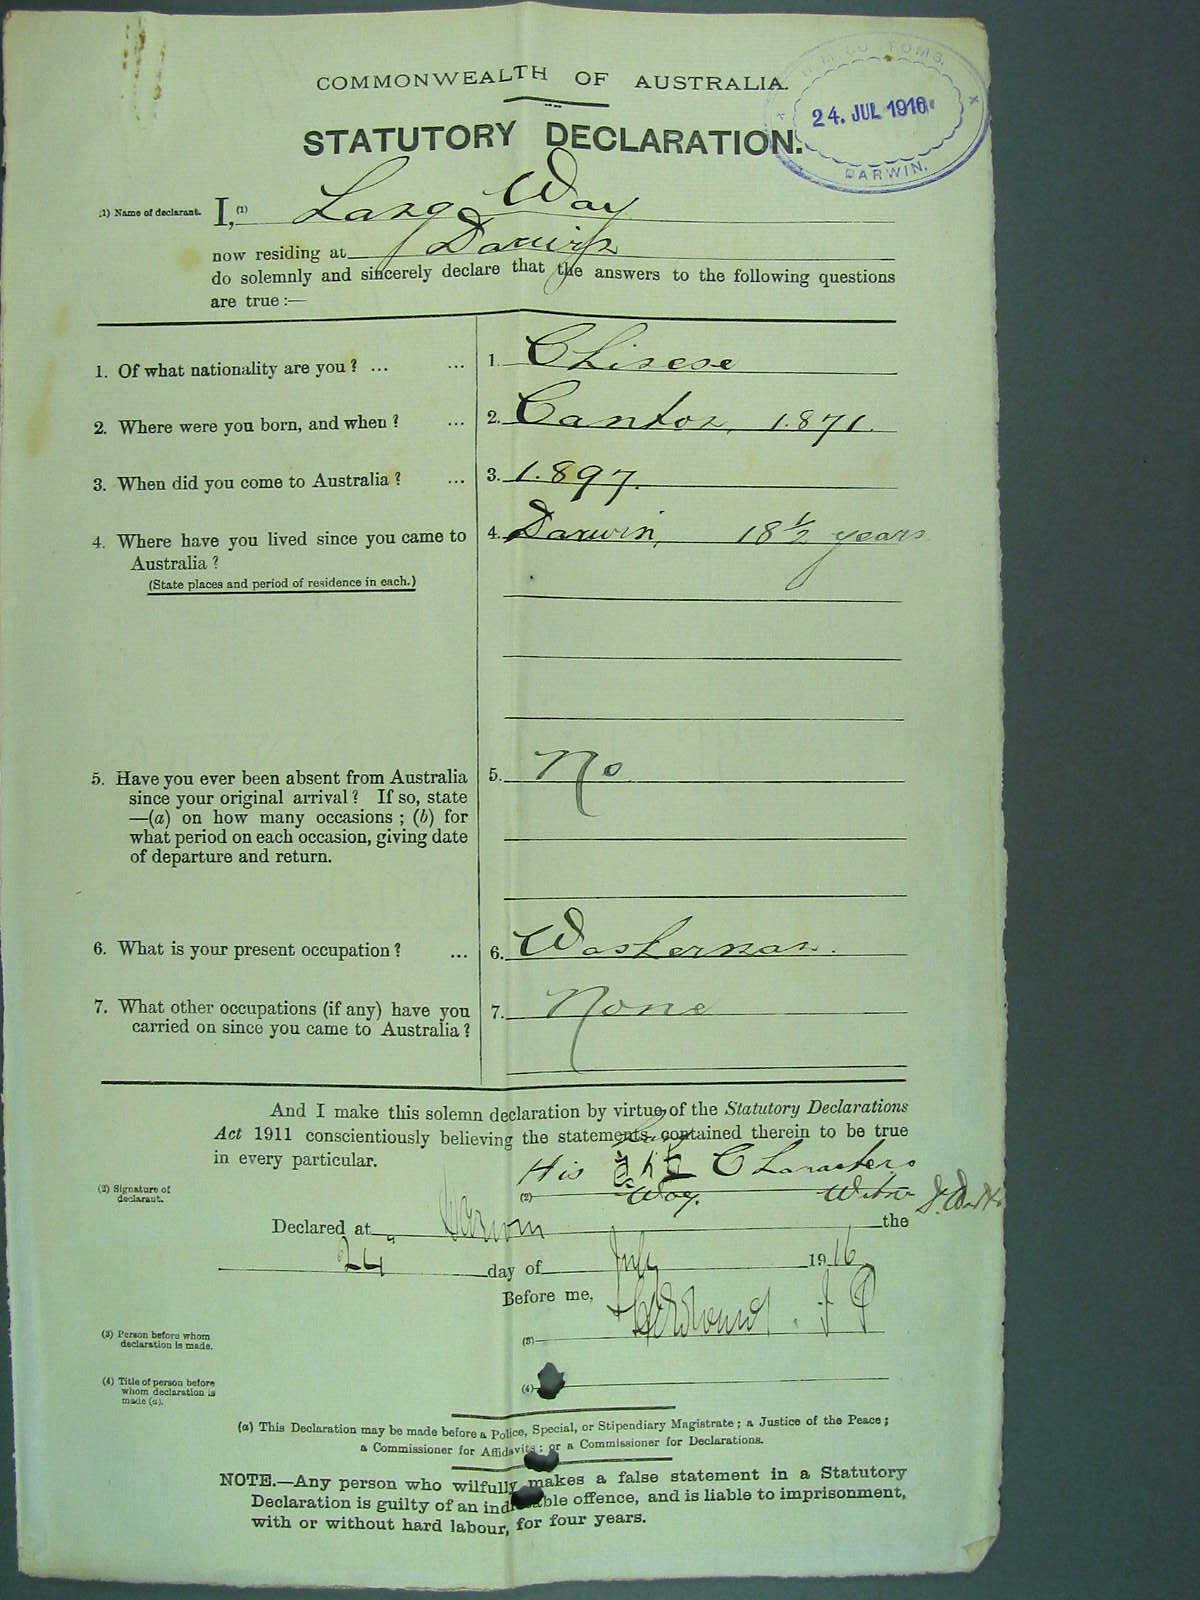 COMMONWEALTH OF AUSTRALIA.
H.M. CUSTOMS.
24. JUL 1916
DARWIN.
STATUTORY DECLARATION.
(1) Name of declarant. I, (1) Lang Way
now residing at Darwin
do solemnly and sincerely declare that the answers to the following questions
are true :—
1. Of what nationality are you ? ... ... 1. Chinese
2. Where were you born, and when ? ... 2. Canton, 1.871.
3. When did you come to Australia ? ... 3. 1.897.
4. Where have you lived since you came to 4. Darwin, 18 1/2 years
Australia ?
(State places and period of residence in each.)
5. Have you ever been absent from Australia 5. No
since your original arrival ? If so, state
—(a) on how many occasions ; (b) for
what period on each occasion, giving date
of departure and return.
6. What is your present occupation ? ... 6. Washerman.
7. What other occupations (if any) have you 7. None
carried on since you came to Australia ?
And I make this solemn declaration by virtue of the Statutory Declarations
Act 1911 conscientiously believing the statements contained therein to be true
in every particular.
His Characters
(2) Signature of declarant. (2) Way. Witn
Declared at Darwin the
24 day of July 1916
Before me,
(3) Person before whom declaration is made. (3) J P
(4) Title of person before whom declaration is made (a). (4)
(a) This Declaration may be made before a Police, Special, or Stipendiary Magistrate ; a Justice of the Peace ;
a Commissioner for Affidavits ; or a Commissioner for Declarations.
NOTE.—Any person who wilfully makes a false statement in a Statutory
Declaration is guilty of an indictable offence, and is liable to imprisonment,
with or without hard labour, for four years.